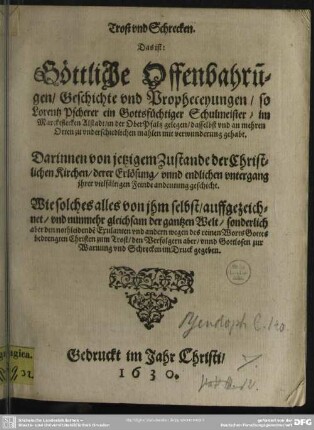 Trost vnd Schrecken.
Das ist:
Göttliche Offenbahrũ-
gen/ Geschichte vnd Propheceyungen/ so
Lorentz Pscherer ein Gottsfürchtiger Schulmeister/ im
Marckflecken Alstadt/an der OberPfaltz gelegen/ daselbst vnd an mehren
Orten zu vnderschiedlichen mahlen mit verwunderung gehabt.
Darinnen von jetzigem Zustande der Christ-
lichen Kirchen/ derer Erlösung/ vnnd endlichen vntergang
jhrer vielfältigen Feinde andeutung geschicht.
Wie solches alles von jhm selbst/ auffgezeich-
net/ vnd nunmehr gleichsam der gantzen Welt/ sonderlich
aber den vorhabende Exulanten vnd andern wegen des reinen Worts Gottes
bedrengten Christen zum Trost/ den Verfolgern aber/ vnnd Gottlosen zur
Warnung vnd Schrecken im Druck gegeben.
Gedruckt im Jahr Christi/
1630.
DFG